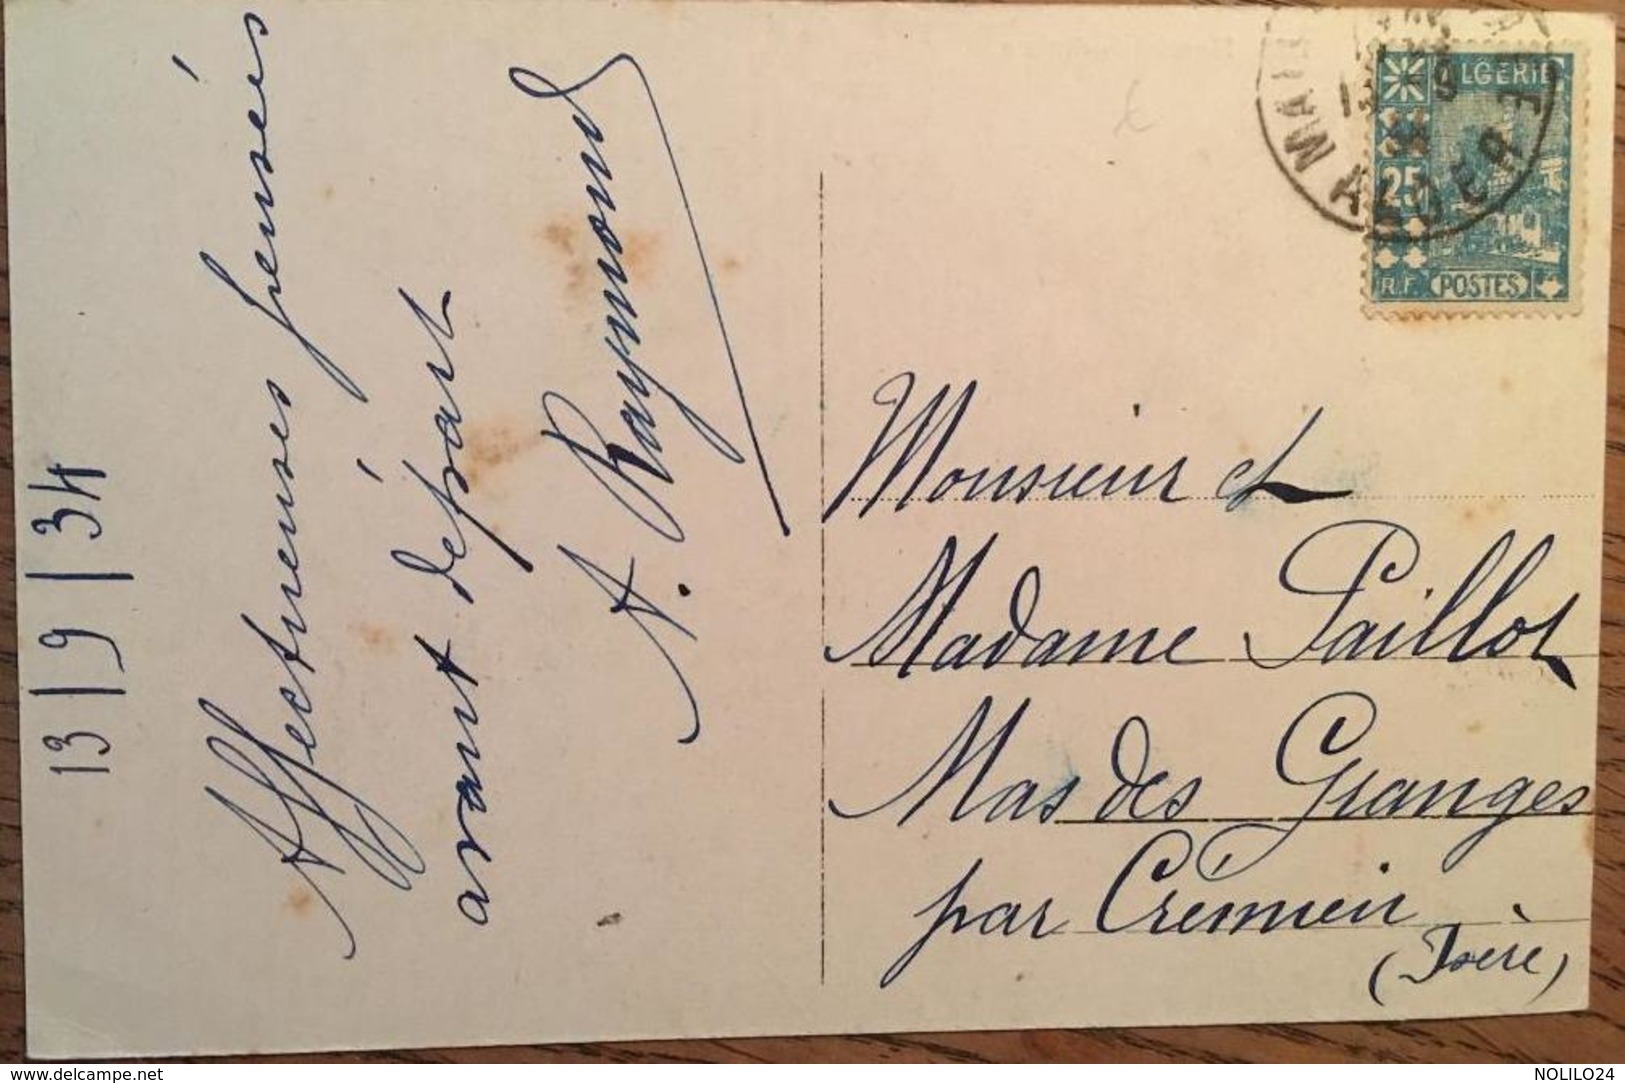 13/9/34
Affectueuses pensées
avant départ
A. Raymond
ALGERIE
25
R.F. POSTES
13 9
34
ALGER
Monsieur et
Madame Paillot
Mas des Granges
par Crémieu
(Isère)
www.delcampe.net
NOLILO24